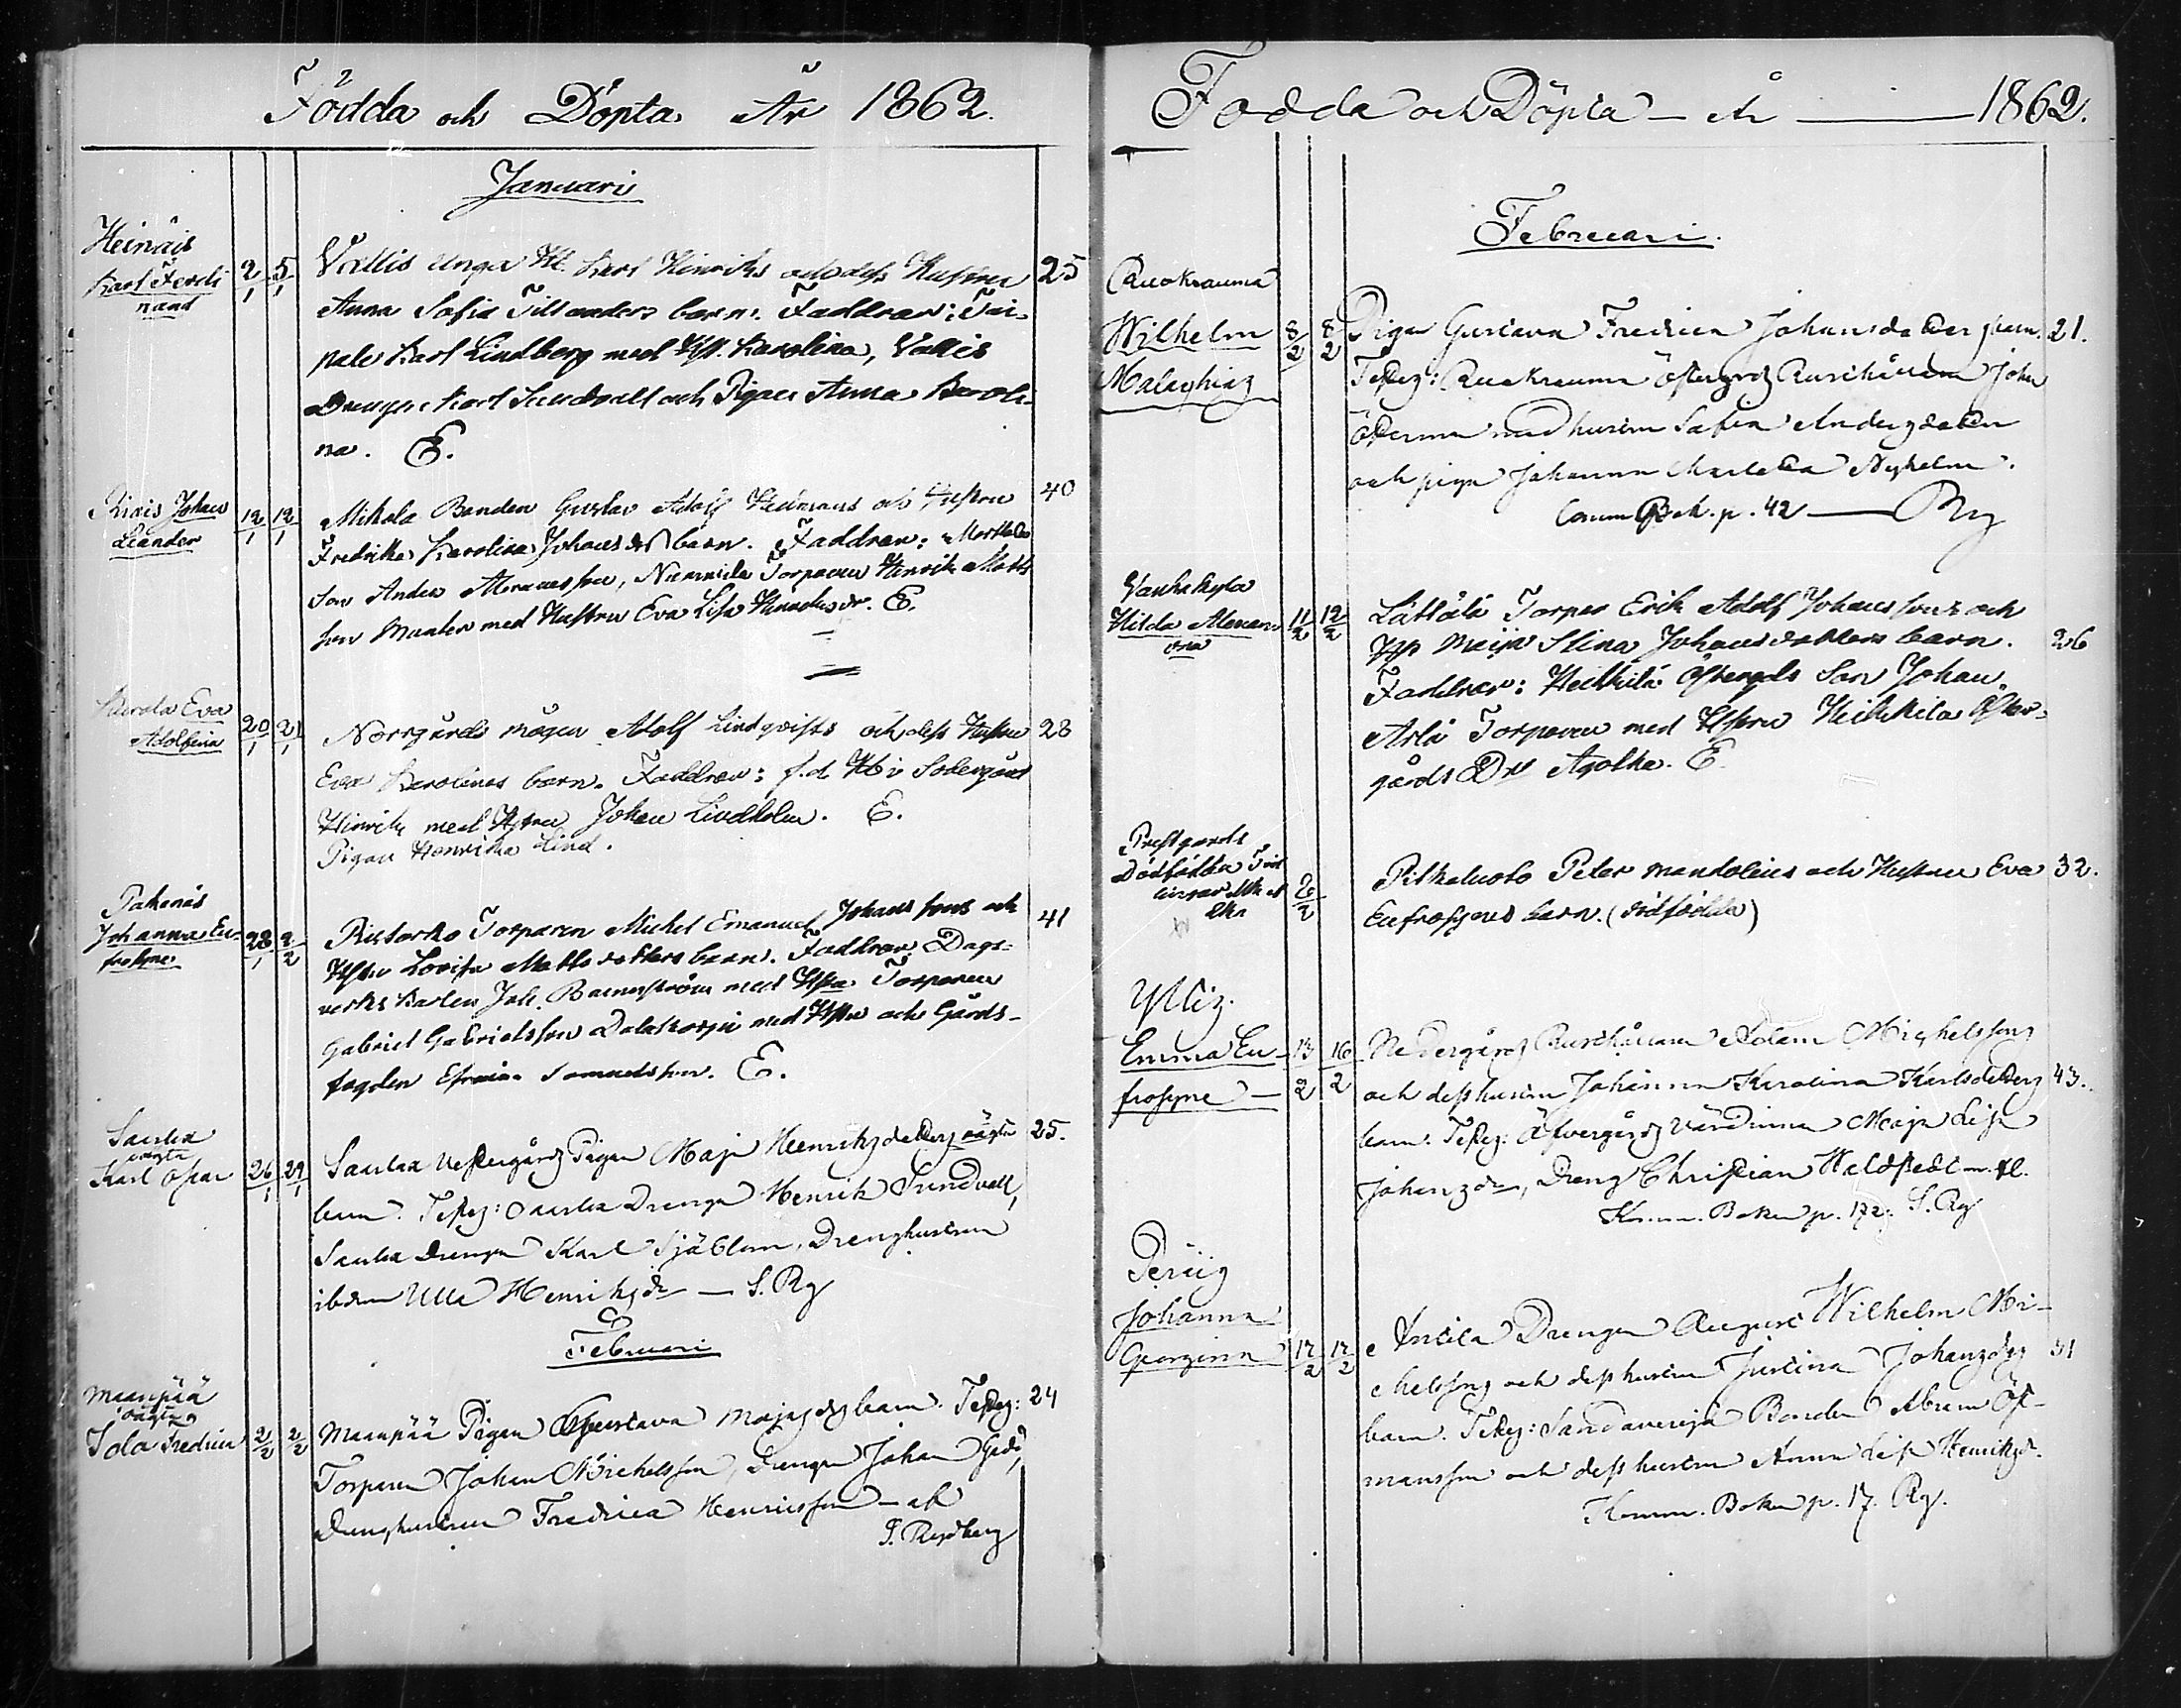 Födda och Döpta År 1862.
Januari
Heinäis
Karl Ferdi
nand
2/1 5/1
Vallis unga Karl Hinriks och dess Hustru 25
Anna Sofia Tillanders barn. Faddrar: Tai-
pale Karl Lindberg med Hst. Karolina, Vallis
Drengen Karl Sundvall och Pigan Anna Karoli-
na. E.
Johan
Leander
12/1 12/1
Mikola Bonden Gustav Adolf Hedmans och Hustru 40
Fredrika Karolina Johansdrs barn. Faddrar:
son Anders, Torparen Henrik Matts
son med Hustru Eva Lisa Hinriksdr. E.
Eva
Adolfina
20/1 21/1
Norrgårds mågen Adolf Lindqvists och dess Hustru 28
Eva Karolinas barn. Faddrar: f.d. Södergård
Hinrik med Hstru Johan Lindholm. E.
Pigan Henrika Lind.
Pahanäs
Johanna Eu-
frosyne
28/1 2/2
Torparen Michel Emanuel Johanssons och 41
Hstru Lovisa Mattsdotters barn. Faddrar: Dags-
verks Karlen Joh. med Hstru Torparen
Gabriel Gabrielsson med Hstru och Gårds-
fogden Efraim Samuelsson. E.
Saustla
oägta
Karl Oscar
26/1 29/1
Vestergårds Pigan Maja Henriksdotters oägta 25.
barn. Test: Drengen Henrik Sundvall,
Drengen Karl Sjöblom, Drenghustrun
ibdm Ulla Henriksdr — S. Rg
Februari
Maanpää
oägta
Ida Fredrica
2/2 2/2
Maanpää Pigan Gustava Majasdrs barn. Test: 24
Torparen Johan Michelsson, Drengen Johan
Drenghustrun Fredrica Henricsson — ab
S. Rydberg
Födda och Döpta — År — 1862.
Februari.
Ruokrauma
Wilhelm
Malachias
8/2 8/2
Pigan Gustava Fredrica Johansdotters barn. 21.
Test: Ruokrauma Östergrds Rusthållaren Johan
Österman med hustru Sofia Andersdotter
och pigan Johanna Nyholm.
Comm. Bok. p. 42 — Rg
Vanhakylä
Hilda Alexan-
dra
11/2 12/2
Torpar Erik Adolf Johanssons och
Hst Maija Stina Johansdotters barn. 26
Faddrar: Heikkilä Östergrds Son Johan,
Arla Torparen med Hstru Heikkilä Öster-
gårds Agatha. E.
Prestgårds
Dödfödda Tvil
lingar
2/2
Peter Mandelius och Hustru Eva 32.
Eufrosynes barn. (dödfödda)
Yllis.
Emma Eu-
frosyne —
13/2 16/2
Nedergårds Rusthållaren Adam Michelssons
och dess hustru Johanna Karolina Karlsdotters 43.
barn. Test: Öfvergårds Värdinna Maja Lisa
Johansdr, Dreng Christian m. fl.
Komm. Boken p. 172. S. Rg
Johanna
Georgina
17/2 17/2
Drengen August Wilhelm Mi- 31
chelssons och dess hustru Justina Johansdrs
barn. Test: Bonden Abram Öst-
mansson och dess hustru Anna Lisa Henriksdr.
Komm. Boken p. 17. Rg.